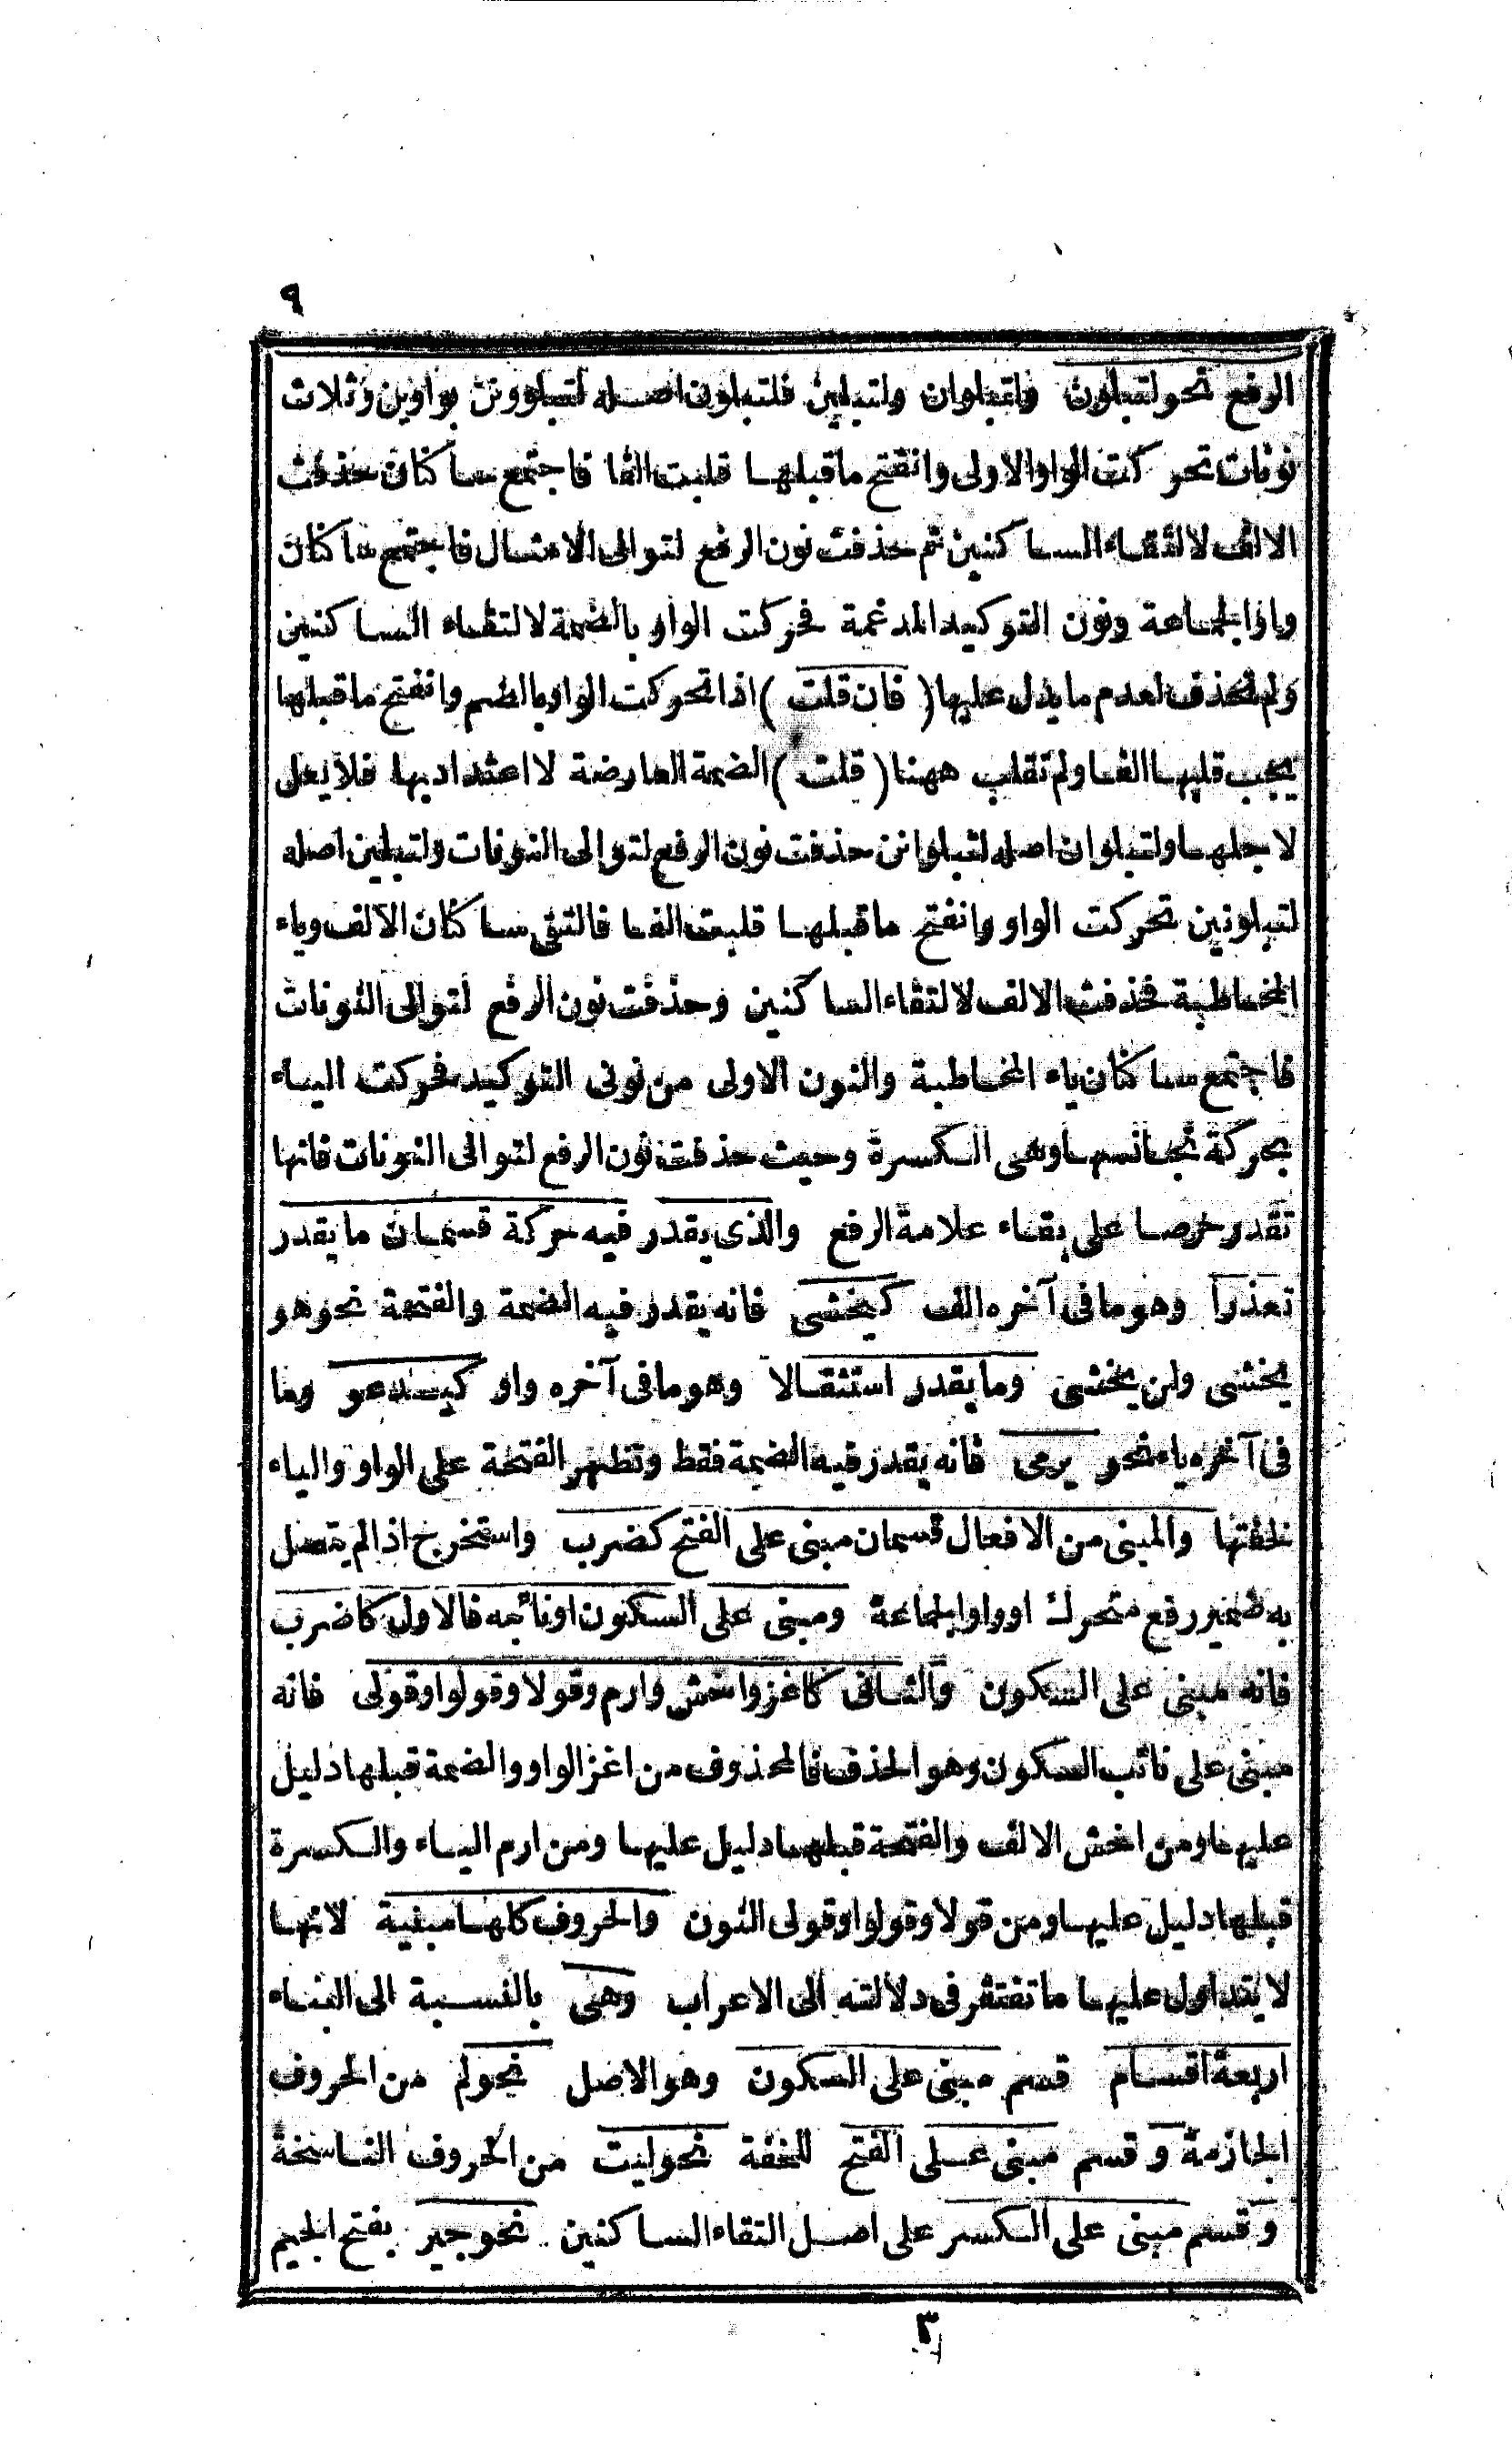 ٩
الرفع نحو لتبلون ولتبلوان ولتبلين فلتبلون اصله لتبلوونن بواوين وثلاث
نونات تحركت الواو الاولى وانفتح ما قبلها قلبت الفا فاجتمع ساكنان حذفت
الالف لالتقاء الساكنين ثم حذفت نون الرفع لتوالى الامثال فاجتمع ساكنان
واو الجماعة ونون التوكيد المدغمة فحركت الواو بالضمة لالتقاء الساكنين
ولم تحذف لعدم ما يدل عليها (فان قلت) اذا تحركت الواو بالضم وانفتح ما قبلها
يجب قلبها الفا ولم تقلب ههنا (قلت) الضمة العارضة لا اعتداد بها فلا يعل
لاجلها ولتبلوان اصله لتبلوانن حذفت نون الرفع لتوالى النونات ولتبلين اصله
لتبلونين تحركت الواو وانفتح ما قبلها قلبت الفا فالتقى ساكنان الالف وياء
المخاطبة فحذفت الالف لالتقاء الساكنين وحذفت نون الرفع لتوالى النونات
فاجتمع ساكنان ياء المخاطبة والنون الاولى من نونى التوكيد فحركت الياء
بحركة تجانسها وهى الكسرة وحيث حذفت نون الرفع لتوالى النونات فانها
تقدر حرصا على بقاء علامة الرفع والذى يقدر فيه حركة قسمان ما يقدر
تعذرا وهو ما فى آخره الف كيخشى فانه يقدر فيه الضمة والفتحة نحو هو
يخشى ولن يخشى وما يقدر استثقالا وهو ما فى آخره واو كيدعو وما
فى آخره ياء نحو يرمى فانه يقدر فيه الضمة فقط وتظهر الفتحة على الواو والياء
لخفتها والمبنى من الافعال قسمان مبنى على الفتح كضرب واستخرج اذا لم يتصل
به ضمير رفع متحرك او واو الجماعة ومبنى على السكون او نائبه فالاول كاضرب
فانه مبنى على السكون والثانى كاغز واخش وارم وقولا وقولوا وقولى فانه
مبنى على نائب السكون وهو الحذف فالمحذوف من اغز الواو والضمة قبلها دليل
عليها ومن اخش الالف والفتحة قبلها دليل عليها ومن ارم الياء والكسرة
قبلها دليل عليها ومن قولا وقولوا وقولى النون والحروف كلها مبنية لانها
لا يتداول عليها ما تفتقر فى دلالته الى الاعراب وهى بالنسبة الى البناء
اربعة اقسام قسم مبنى على السكون وهو الاصل نحو لم من الحروف
الجازمة وقسم مبنى على الفتح للخفة نحو ليت من الحروف الناسخة
وقسم مبنى على الكسر على اصل التقاء الساكنين نحو جير بفتح الجيم
٣